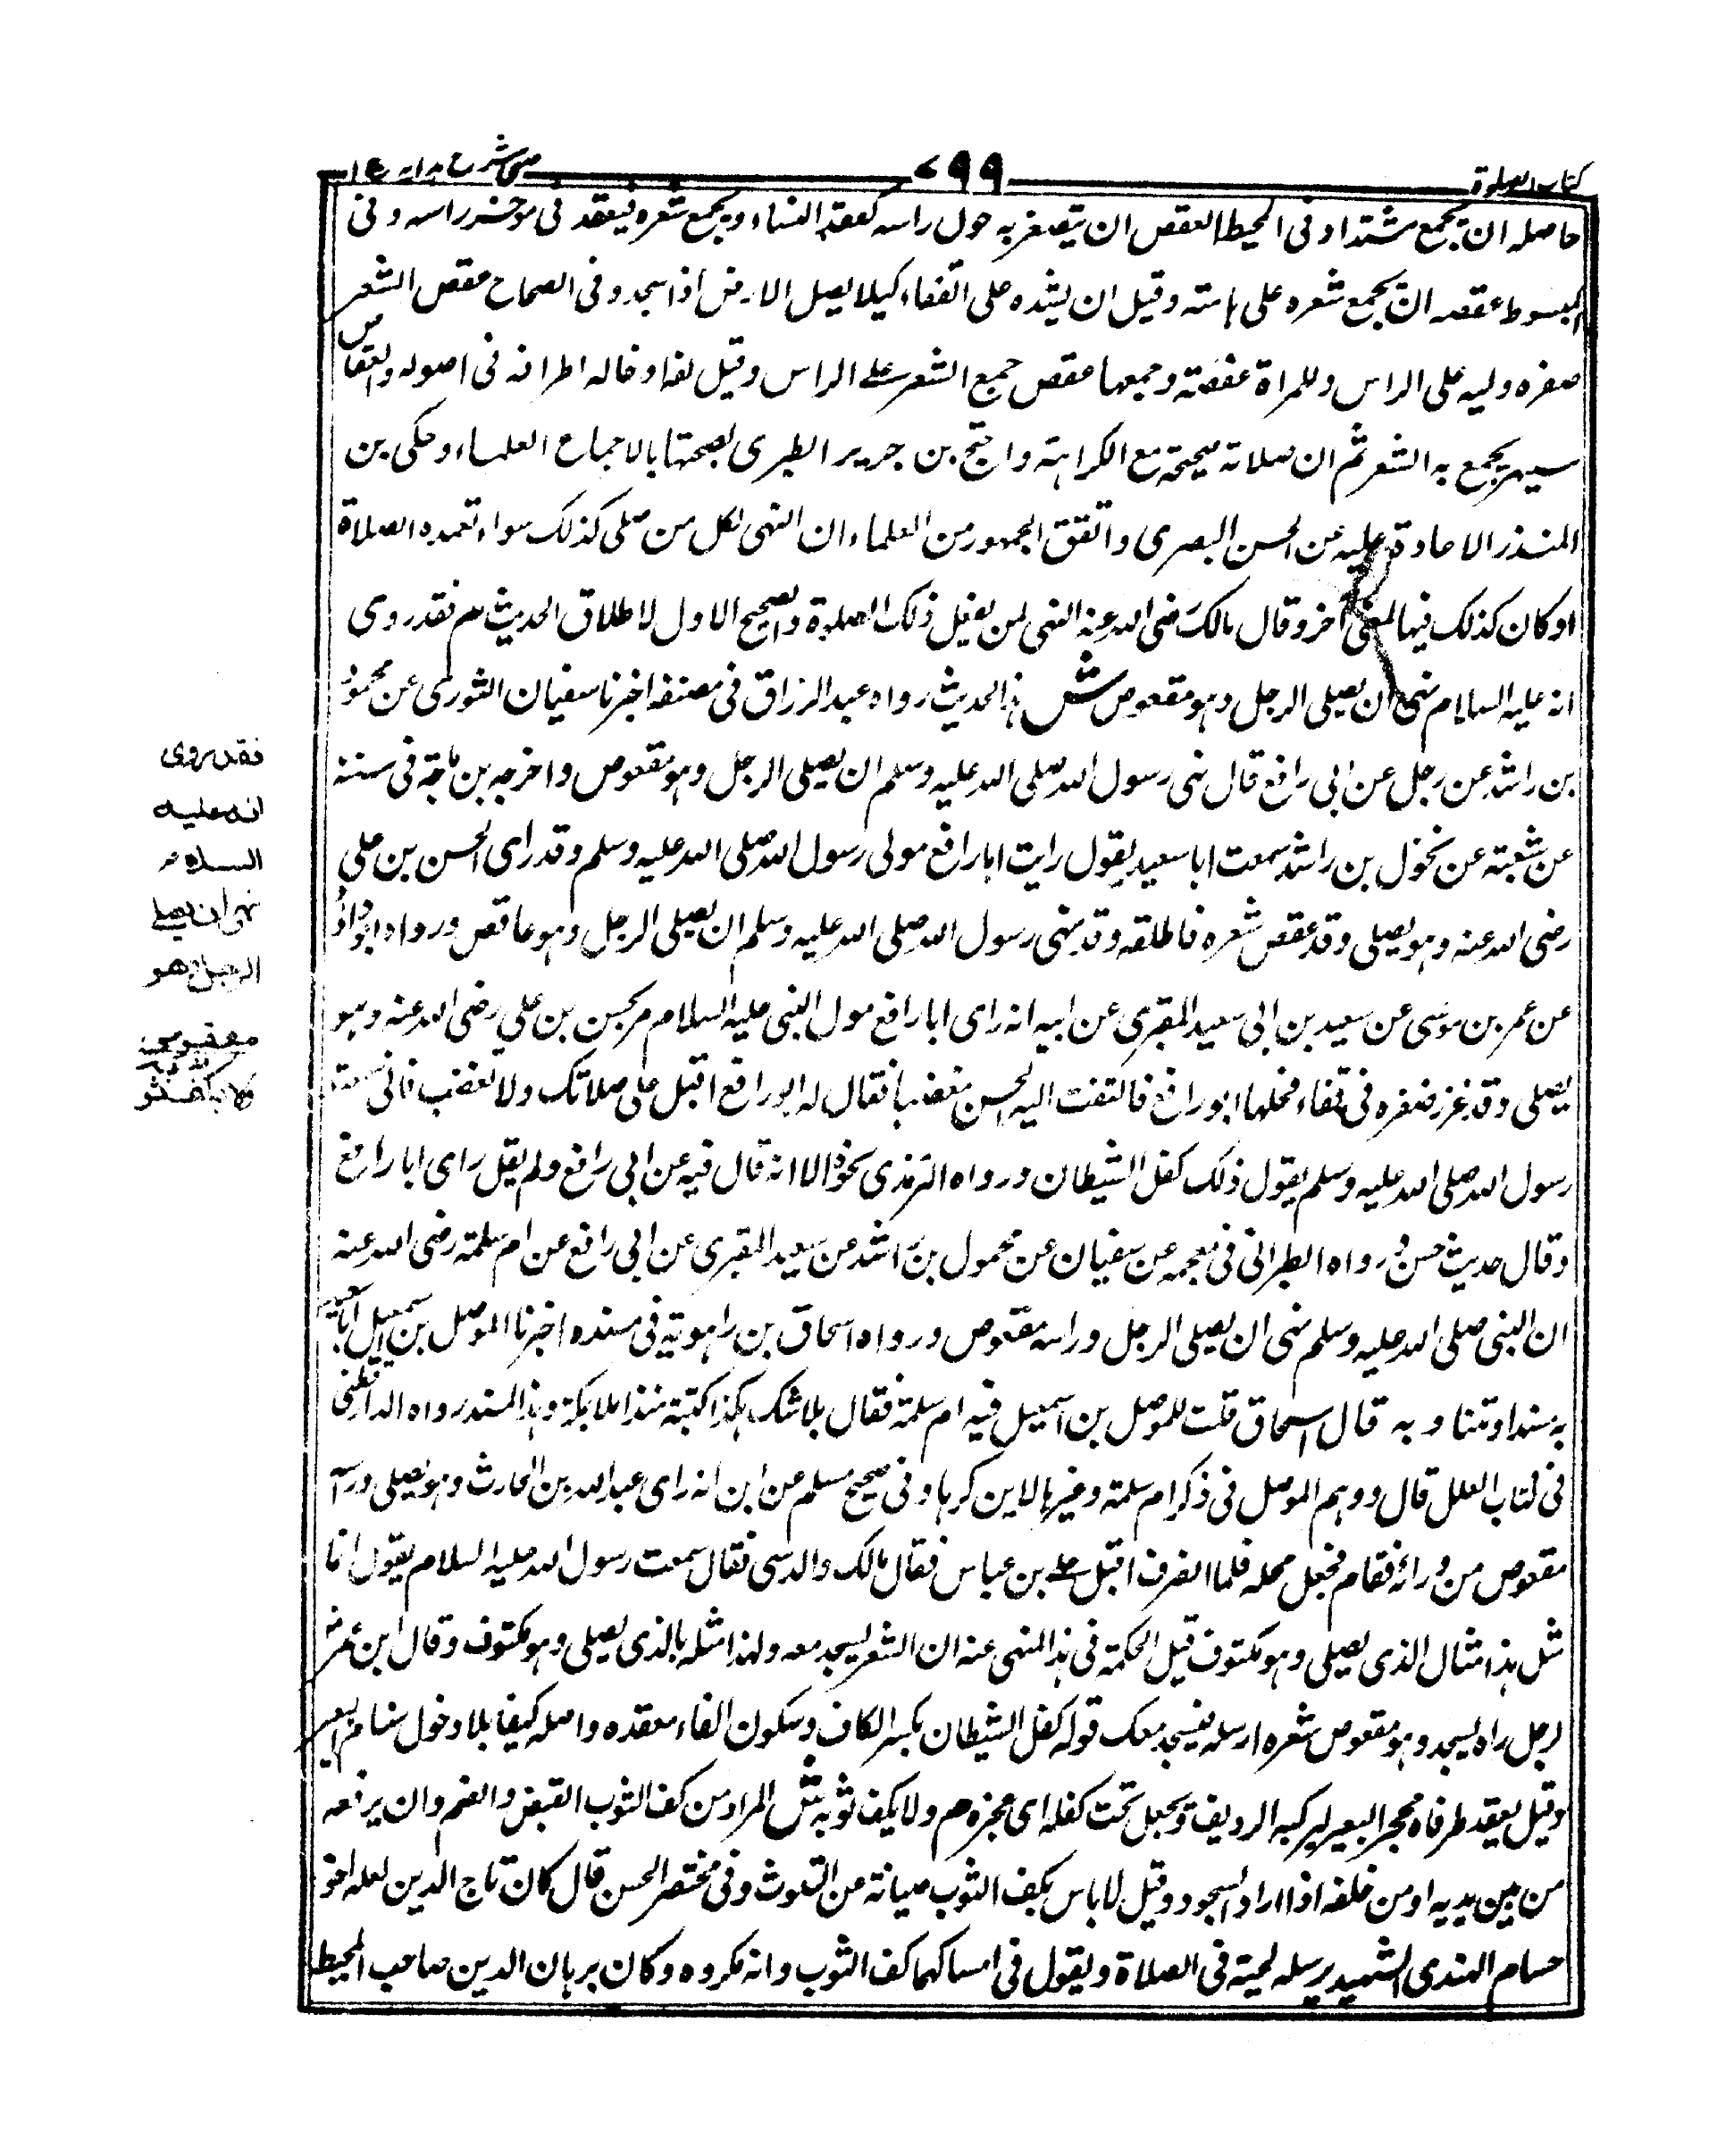 كتاب الصلوة
٧٩٩
عينى شرح هدايه ج ١
حاصله ان يجمع مشتدا وفى المحيط العقص ان يتصغر به حول راسه كعقد النساء ويجمع شعره فيعقد فى موخر راسه وفى
المبسوط عقصه ان يجمع شعره على هامته وقيل ان يشده على القفاء كيلا يصل الارض اذا سجد وفى الصحاح عقص الشعر
صفره وليه على الراس وللمراة عقصة وجمعها عقص جمع الشعر على الراس وقيل لفه اوخاله اطرافه فى اصوله والعقاص
سيهر يجمع به الشعر ثم ان صلاته صحيحة مع الكراهة واحتج بن جرير الطبرى بصحتها بالاجماع العلماء وحكى بن
المنذر الاعادة عليه عن الحسن البصرى واتفق الجمهور من العلماء ان النهى لكل من صلى كذلك سواء تعمده الصلاة
او كان كذلك فيها لمعنى آخر وقال مالك رضى الله عنه النهى لمن يفعل ذلك الصلوة والصحيح الاول لاطلاق الحديث م فقد روى
انه عليه السلام نهى ان يصلى الرجل وهو مقعوص ش هذا الحديث رواه عبد الرزاق فى مصنفه اخبرنا سفيان الثورى عن محمول
بن راشد عن رجل عن ابى رافع قال نهى رسول الله صلى الله عليه وسلم ان يصلى الرجل وهو مقعوص واخرجه بن ماجة فى سننه
عن شعبة عن نخول بن راشد سمعت ابا سعيد يقول رايت ابا رافع مولى رسول الله صلى الله عليه وسلم وقد راى الحسن بن على
رضى الله عنه وهو يصلى وقد عقص شعره فاطلقه وقد نهى رسول الله صلى الله عليه وسلم ان يصلى الرجل وهو عاقص ورواه ابو داؤد
عن عمر بن موسى عن سعيد بن ابى سعيد المقبرى عن ابيه انه راى ابا رافع مول النبى عليه السلام مر بحسن بن على رضى الله عنه وهو
يصلى وقد غرز ضفره فى قفاء فحلها ابو رافع فالتفت اليه الحسن مغضبا فقال له ابو رافع اقبل على صلاتك ولا تغضب فانى سمعت
رسول الله صلى الله عليه وسلم يقول ذلك كفل الشيطان ورواه الترمذى نحوه الا انه قال فيه عن ابى رافع ولم يقل راى ابا رافع
وقال حديث حسن ورواه الطبرانى فى معجمه عن سفيان عن محمول بن راشد عن سعيد المقبرى عن ابى رافع عن ام سلمة رضى الله عنه
ان النبى صلى الله عليه وسلم نهى ان يصلى الرجل وراسه مقعوص ورواه اسحاق بن راهويه فى مسنده اخبرنا الموصل بن اسمعيل
به سندا ومتنا وبه قال اسحاق قلت للموصل بن اسمعيل فيه ام سلمة فقال بلاشك هكذا كتبته منذ املا بمكة وهذا السند رواه الدارقطنى
فى كتاب العلل قال ووهم الموصل فى ذكر ام سلمة وغيرها لا ين كرها وفى صحيح مسلم عن ابن انه راى عبد الله بن الحارث وهو يصلى وراسه
مقعوص من ورائه فقام فجعل محله فلما انصرف اقبل على بن عباس فقال مالك والدسى فقال سمعت رسول الله عليه السلام يقول انما
مثل هذا مثال الذى يصلى وهو مكتوف قيل الحكمة فى هذا المنهى عنه ان الشعر يسجد معه ولهذا مثله بالذى يصلى وهو مكتوف وقال ابن عمر
لرجل راه يسجد وهو مقعوص شعره ارسله ليسجد معك قوله كفل الشيطان بكسر الكاف وسكون الفاء مقعده واصله كيفا بلا دخول سنام البعير
وقيل يعقد طرفاه محجر البعير ليركبه الرديف ويجعل تحت كفله اى عجزه م ولا يكف ثوبه ش المراد من كف الثوب القبض والضم وان يرفعه
من بين يديه او من خلفه اذا اراد السجود وقيل لا باس بكف الثوب صيانة عن التلوث وفى مختصر الحسن قال كان تاج الدين لعله اخو
حسام الهندى الشهيد يرسله لحيته فى الصلاة ويقول فى امساكهما كف الثوب وانه مكروه وكان برهان الدين صاحب المحيط
فقد روى
انه عليه
السلام
نهى ان يصلى
الرجل وهو
معقوص
ولا يكف ثوبه